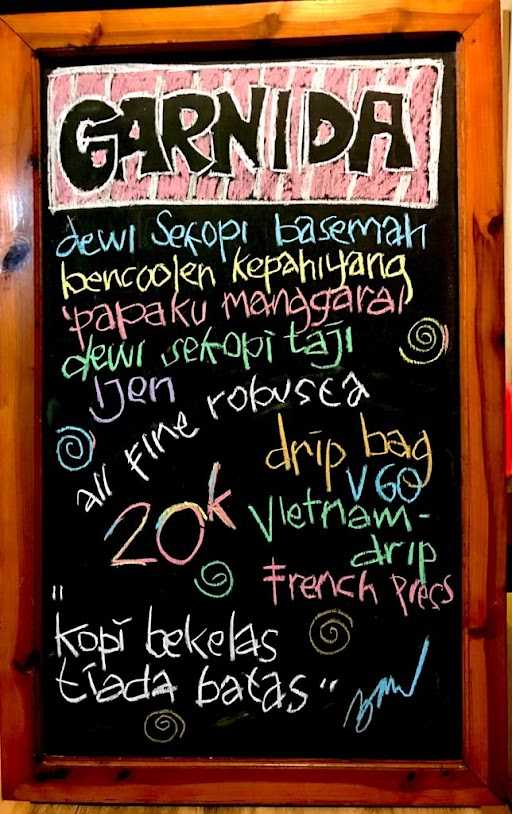 GARNIDA
dewi sekopi basemah
bencoolen kepahiyang
papaku manggarai
dewi sekopi taji
Ijen
all fine robusta
20k
drip bag
V60
Vietnam-
drip
French Press
"kopi bekelas
tiada batas"